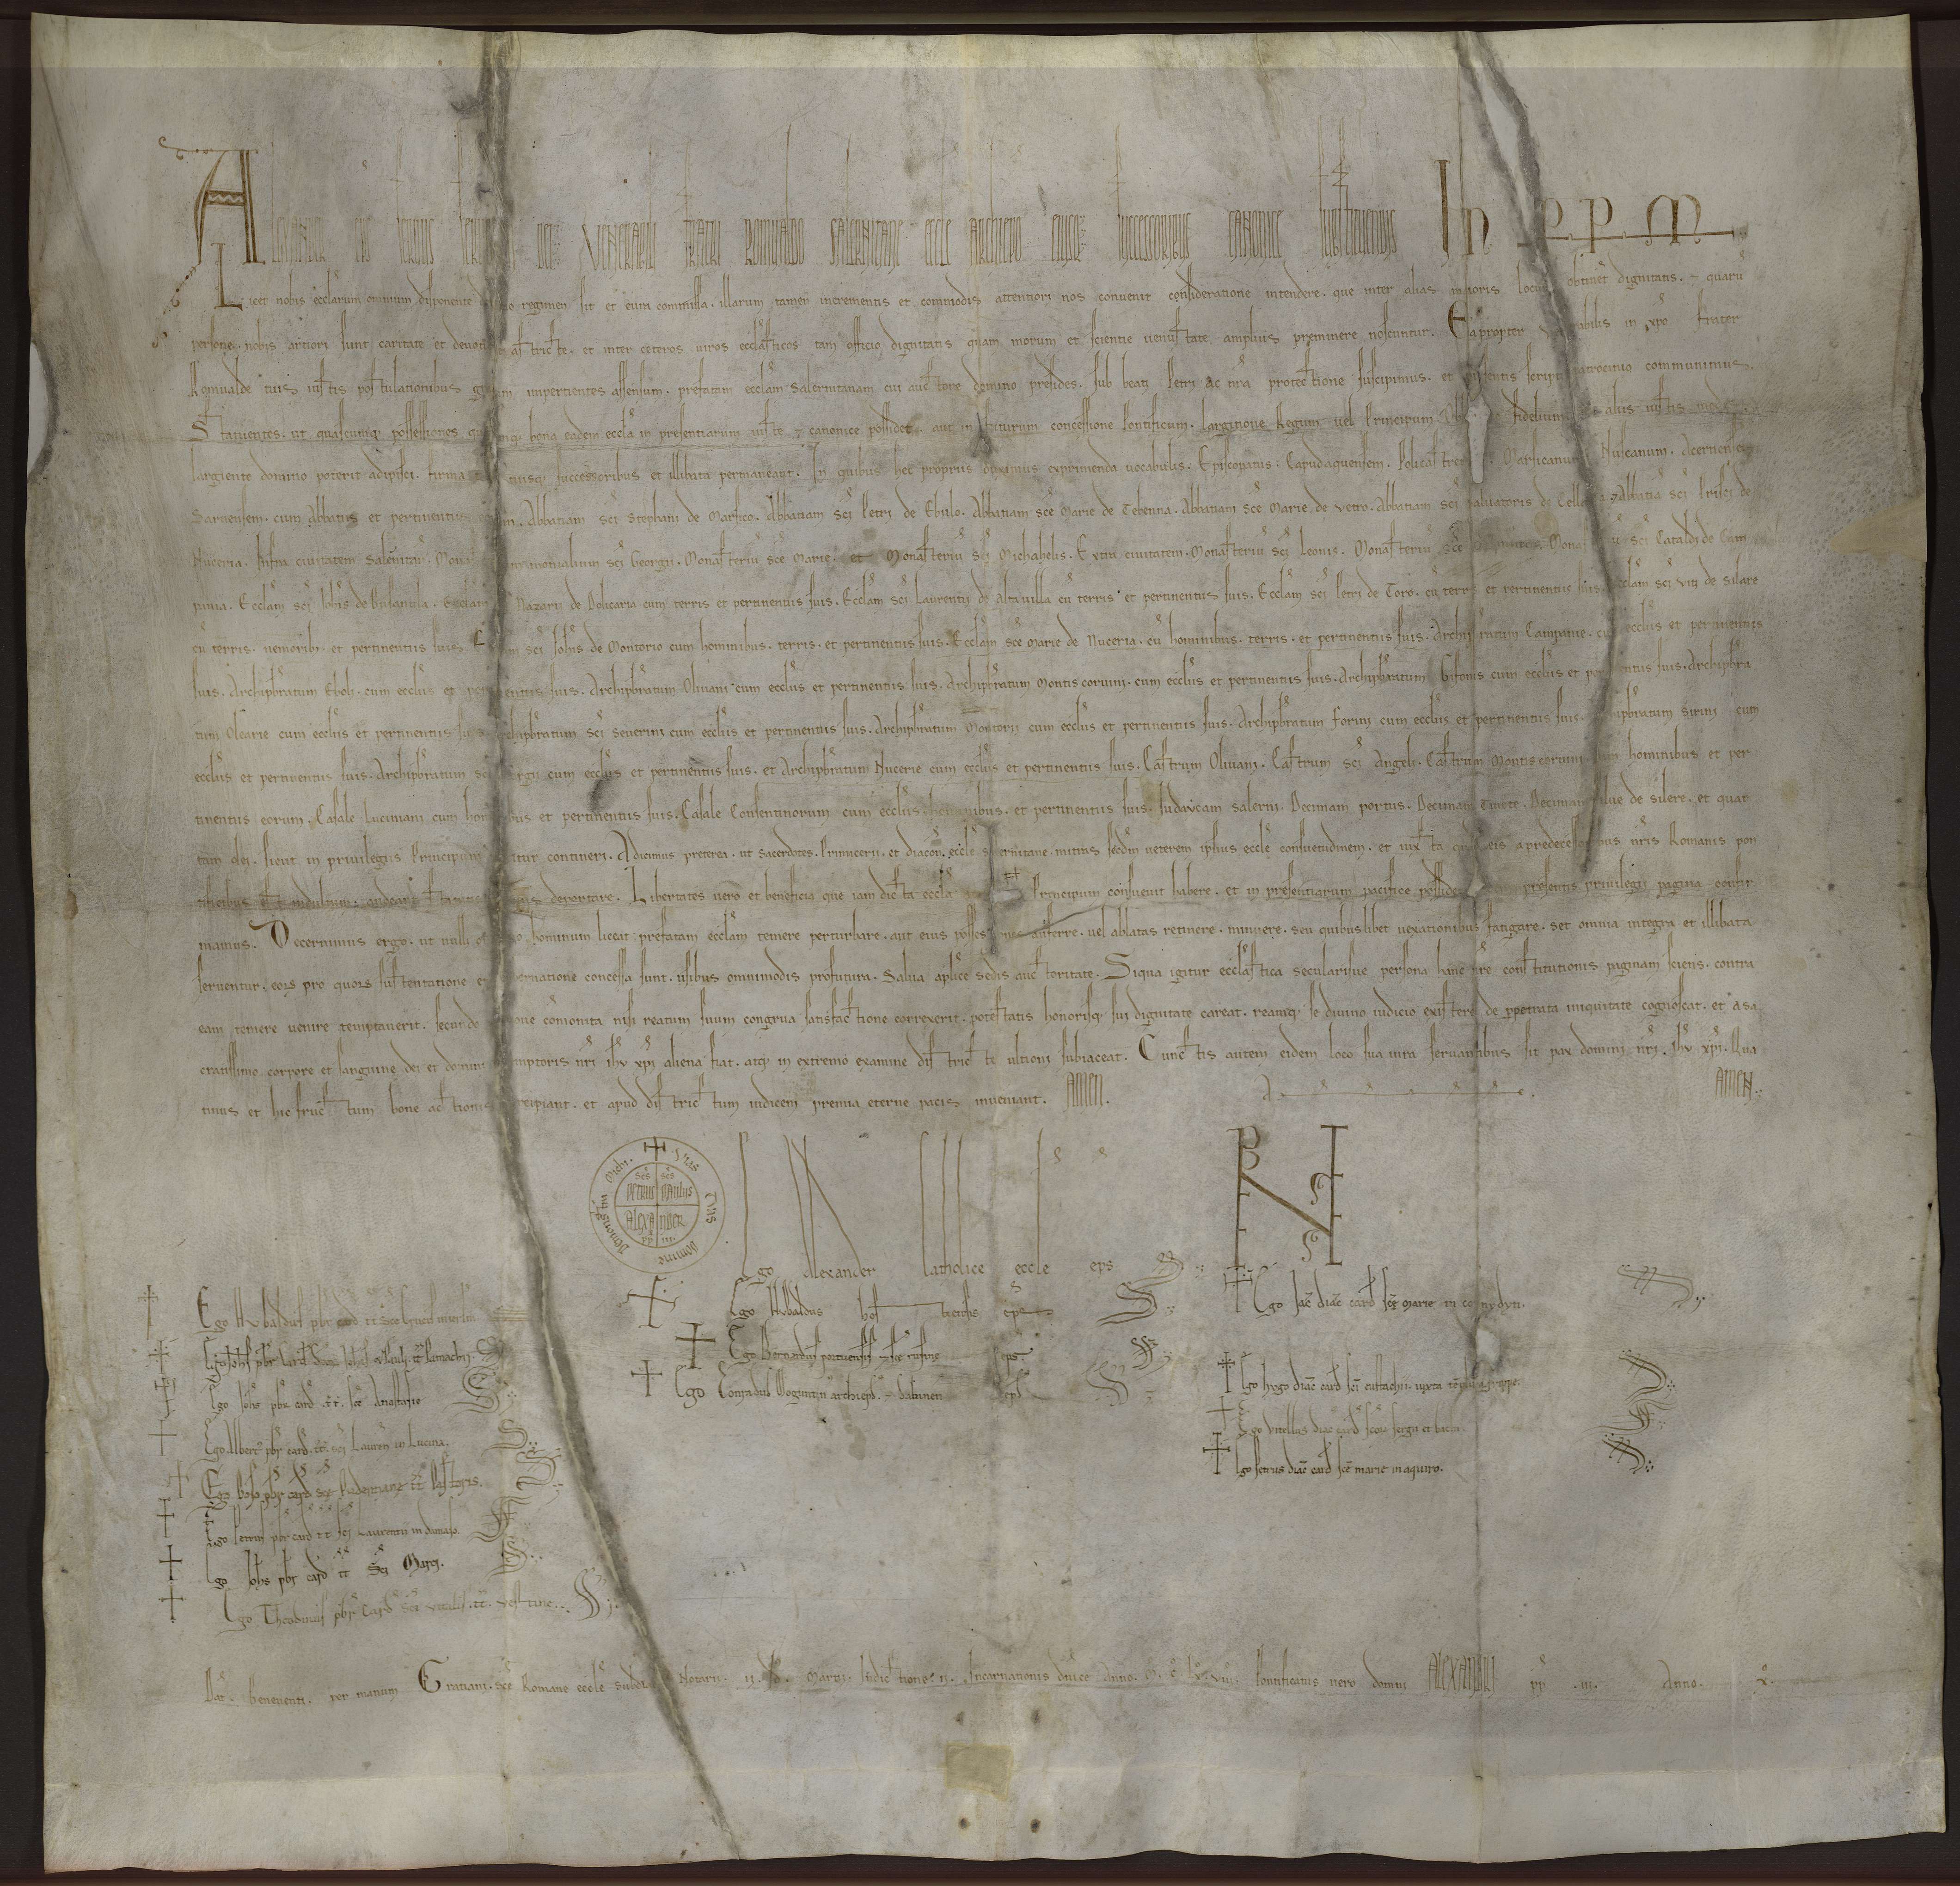 Alexander eps seruus seruorum dei Venerabili fratri Romualdo Salernitane eccle archiepo eiusq; successoribus canonice substituendis In ppm
Licet nobis ecclarum omnium disponente regimen sit et cura commissa. illarum tamen incrementis et commodis attentiori nos conuenit consideratione intendere. que inter alias maioris locum obtinet dignitatis. quaru
persone nobis artiori sunt caritate et deuotione astricte. et inter ceteros uiros ecclasticos tam officio dignitatis quam morum et scientie uenustate amplius preminere noscuntur. Eapropter uenerabilis in xpo frater
Romualde tuis iustis postulationibus gratum impertientes assensum. prefatam ecclam Salernitanam cui auctore domino presides. sub beati Petri ac nra protectione suscipimus. et presentis scripti patrocinio communimus.
Statuentes. ut quascumq; possessiones quecumq; bona eadem eccla in presentiarum iuste et canonice possidet. aut in futurum concessione Pontificum. largitione Regum uel Principum fidelium aliis iustis modis
largiente domino poterit adipisci. firma tuisq; successoribus et illibata permaneant. In quibus hec propriis duximus exprimenda uocabulis. Episcopatus. Capudaquensem. Policastrensem. Marsicanum Nuscanum. Acernensem
Sarnensem. cum abbatiis et pertinentiis. Abbatiam sci Stephani de Marsico. Abbatiam sci Petri de Ebulo. Abbatiam sce Marie de Tebenna. Abbatiam sce Marie de Vetro. Abbatiam sci Saluatoris de Abbatia sci Prisci de
Nuceria. Infra ciuitatem Salernitan. sanctimonialium sci Georgii. Monasteriu sce Marie. et Monasteriu sci Michahelis. Extra ciuitatem. Monasteriu sci Leonis. Monasteriu sce sci Cataldi de Cam
pania. Ecclam sci Iohis de Busanula. Ecclam Nazarii de Policaria cum terris et pertinentiis suis. Ecclam sci Laurentii de Altauilla cu terris et pertinentiis suis. Ecclam sci Petri de Toro. cu terris et pertinentiis suis. Ecclam sci Viti de Silare
cu terris. nemorib; et pertinentiis suis. Ecclam sci Iohis de Montorio cum hominibus. terris. et pertinentiis suis. Ecclam sce Marie de Nuceria. cu hominibus. terris. et pertinentiis suis. Archipbratum Campanie. cum ecclis et pertinentiis
suis. Archipbratum Eboli. cum ecclis et pertinentiis suis. Archipbratum Oliuani cum ecclis et pertinentiis suis. Archipbratum Montis coruini. cum ecclis et pertinentiis suis. Archipbratum Gifonis cum ecclis et pertinentiis suis. Archipbra
tum Olearie cum ecclis et pertinentiis suis. Archipbratum sci Seuerini cum ecclis et pertinentiis suis. Archipbratum Montorii cum ecclis et pertinentiis suis. Archipbratum Forini cum ecclis et pertinentiis suis. Archipbratum Sirini cum
ecclis et pertinentiis suis. Archipbratum sci Georgii cum ecclis et pertinentiis suis. et Archipbratum Nucerie cum ecclis et pertinentiis suis. Castrum Oliuani. Castrum sci Angeli. Castrum Montis coruini. cum hominibus et per
tinentiis eorum. Casale Luciniani cum hominibus et pertinentiis suis. Casale Consentinorum cum ecclis. hominibus. et pertinentiis suis. Iudaycam Salerni. Decimam portus. Decimam silue de silere. et quar
tam dei. sicut in priuilegiis Principum contineri. Adicimus preterea. ut sacerdotes. Primicerii. et diacon. eccle Salernitane. mitras secdm ueterem ipsius eccle consuetudinem. et iuxta quod eis a predecessoribus nris Romanis pon
tificibus est indultum. deportare. Libertates uero et beneficia que iam dicta eccla Principum consueuit habere. et in presentiarum pacifice possidet presentis priuilegii pagina confir
mamus. Decernimus ergo. ut nulli omnino hominum liceat prefatam ecclam temere perturbare. aut eius possessiones auferre. uel ablatas retinere. minuere. seu quibuslibet uexationibus fatigare. set omnia integra et illibata
seruentur. eor pro quor sustentatione et gubernatione concessa sunt. usibus omnimodis profutura. Salua aplice sedis auctoritate. Siqua igitur ecclastica secularisue persona hanc nre constitutionis paginam sciens. contra
eam temere uenire temptauerit. secundo tertioue comonita nisi reatum suum congrua satisfactione correxerit. potestatis honorisq; sui dignitate careat. reamq; se diuino iudicio existere de ppetrata iniquitate cognoscat. et a sa
cratissimo corpore et sanguine dei et domini redemptoris nri ihu xpi aliena fiat. atq; in extremo examine districte ultioni subiaceat. Cunctis autem eidem loco sua iura seruantibus sit pax domini nri ihu xpi. Qua
tinus et hic fructum bone actionis percipiant. et apud districtum iudicem premia eterne pacis inueniant. AMEN. A AMEN
Vias Tuas Domine Demonstra Michi
Scs PETRUS Scs PAULUS
ALEXANDER
PP III
Ego Alexander Catholice eccle eps
Ego Hubaldus Hostiensis eps
Ego Bernardus portuensis et sce Rufine eps
Ego Conradus Maguntin archieps. et Sabinen eps
Ego Hubaldus pbr card tt sce
Ego Iohs pbr Card scor Iohis et Pauli. tt Pamachii
Ego Iohs pbr card tt. sce Anastasie
Ego Albert pbr card. tt. sci Lauren in Lucina.
Ego Boso pbr card sce Pudentiane tt Pastoris.
Ego Petrus pbr card tt sci Laurentii in damaso.
Ego Iohs pbr card tt Sci Marci.
Ego Theodinus pbr Card Sci Vitalis. tt. Vestine.
Ego Iac diac card sce Marie in cosmydyn.
Ego hugo diac card sci eustachii. iuxta templ agrippe.
Ego Vitellus diac card scor sergii et bachi
Ego Petrus diac card sce marie in aquiro.
Dat. Beneuenti. per manum Gratiani. sce Romane eccle subdiac Notarii. Martii. Indictione. ii. Incarnationis dnice Anno. M. c. lx. viii. Pontificatus uero domni ALEXANDRI pp .iii. Anno. x.